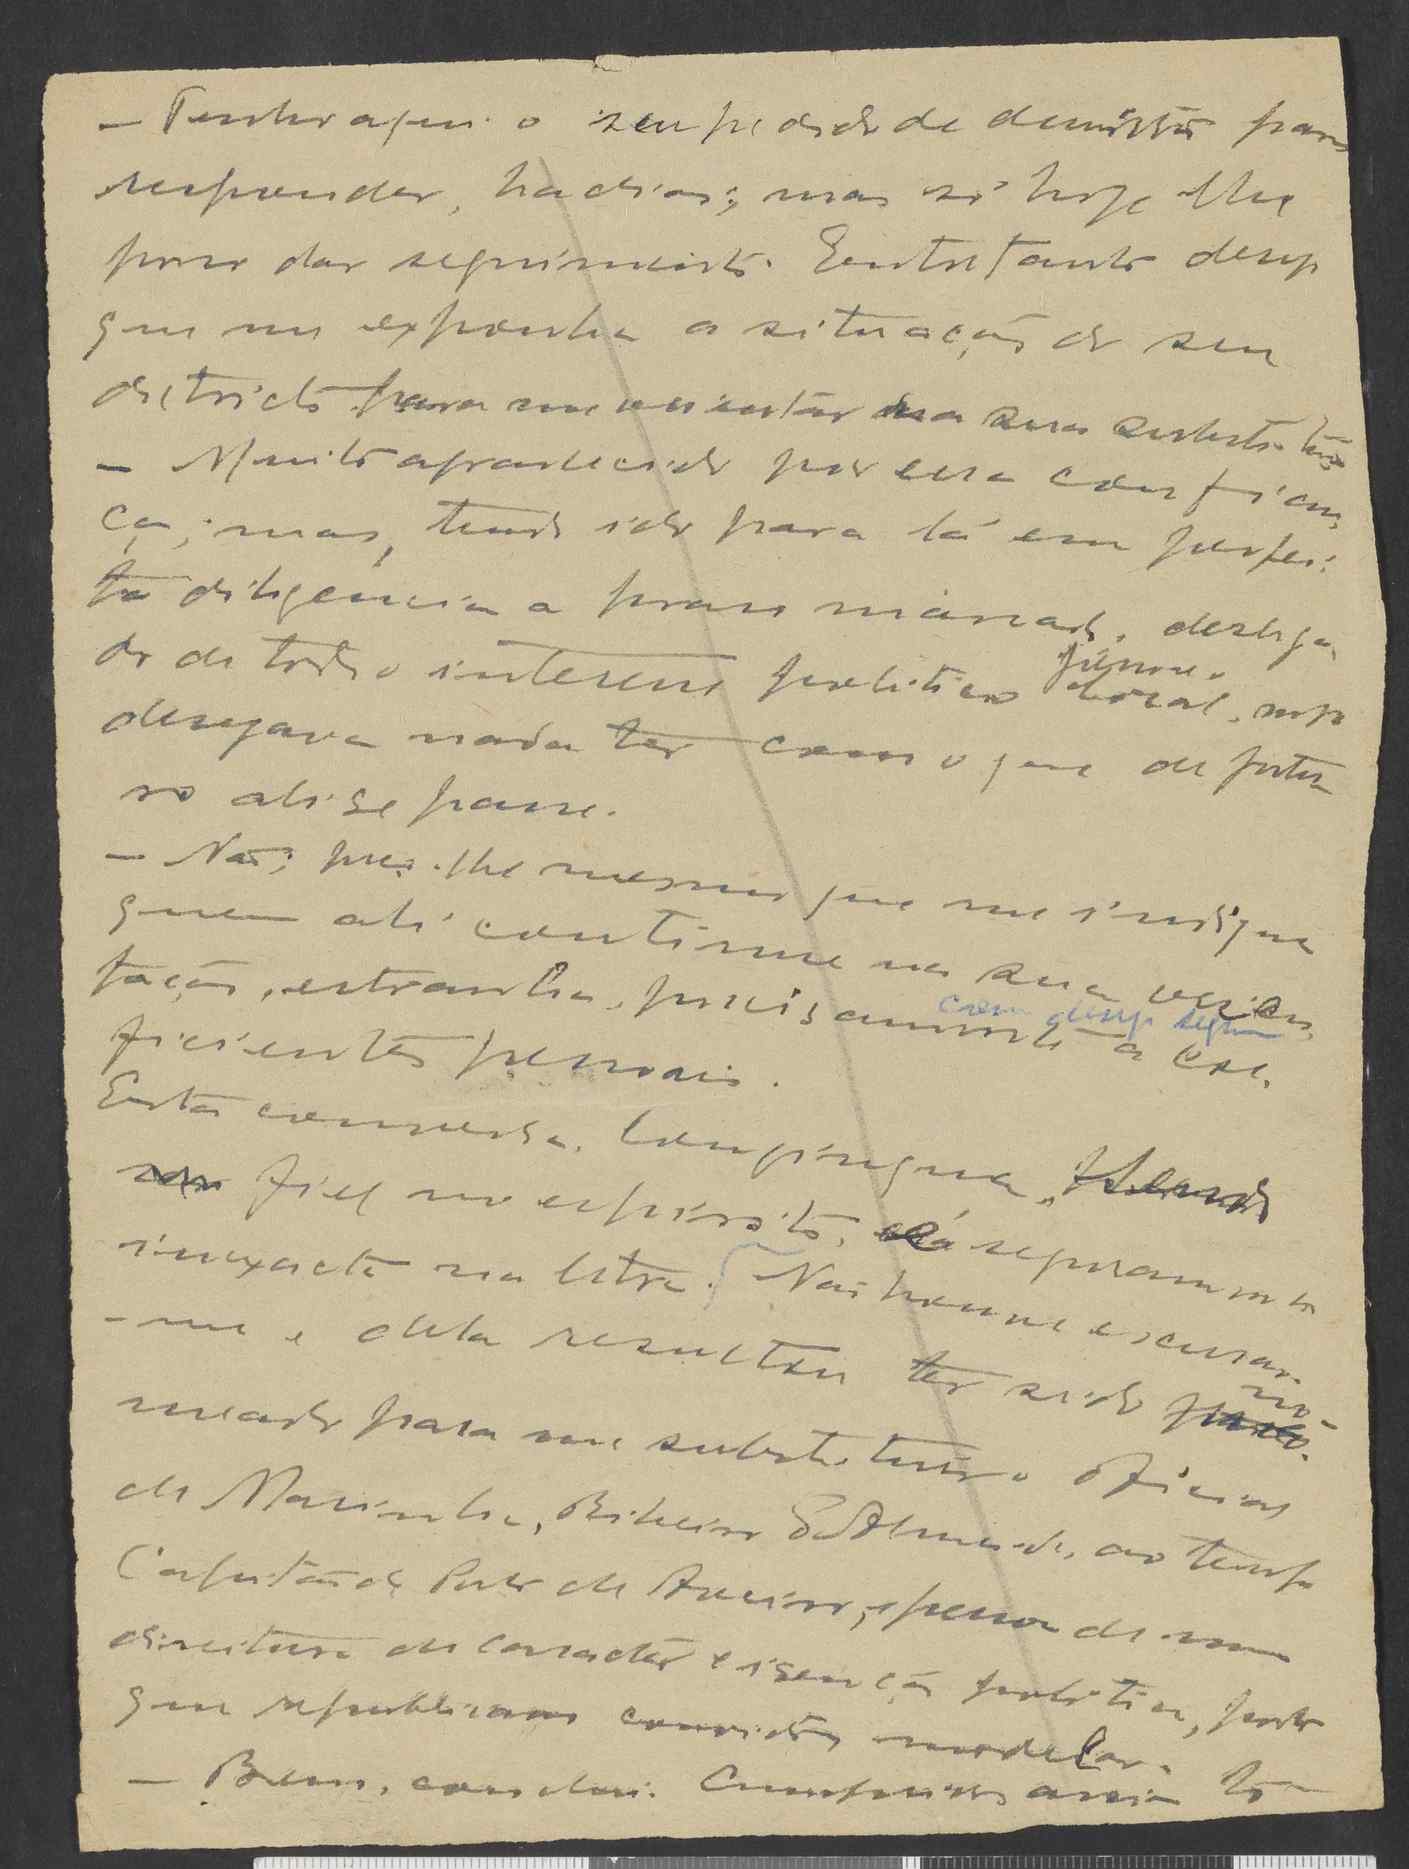 — Tenho aqui o seu pedido de demissão para
responder, ha dias; mas só hoje lhe
posso dar seguimento. Entretanto desejo
que me exponha a situação do seu
districto para me orientar na sua substituição
— Muito agradecido por essa confian-
ça; mas, tendo ido para lá em perfei-
ta diligencia a praso marcado, desliga-
do de todo o interesse politico local,
desejava nada ter com o que de futu-
ro ali se passe.
— Não; peço-lhe mesmo que me indique
quem ali continue na sua orien-
tação, estranha, precisamente a coe-
com desejo segu
ficientes pessoais.
Esta conversa, longinqua,
fiel no espirito, é seguramente
inexacta na letra. Não houve escusar-
-me e dela resultou ter sido no-
meado para me substituir o oficial
de Marinha, Ribeiro d'Almeida, ao tempo
Capitão do Porto de Aveiro, pessoa de uma
direitura de caracter e isenção politica, posto
que republicano convicto, modelar.
— Bem, conclui. Cumprida assim tô-